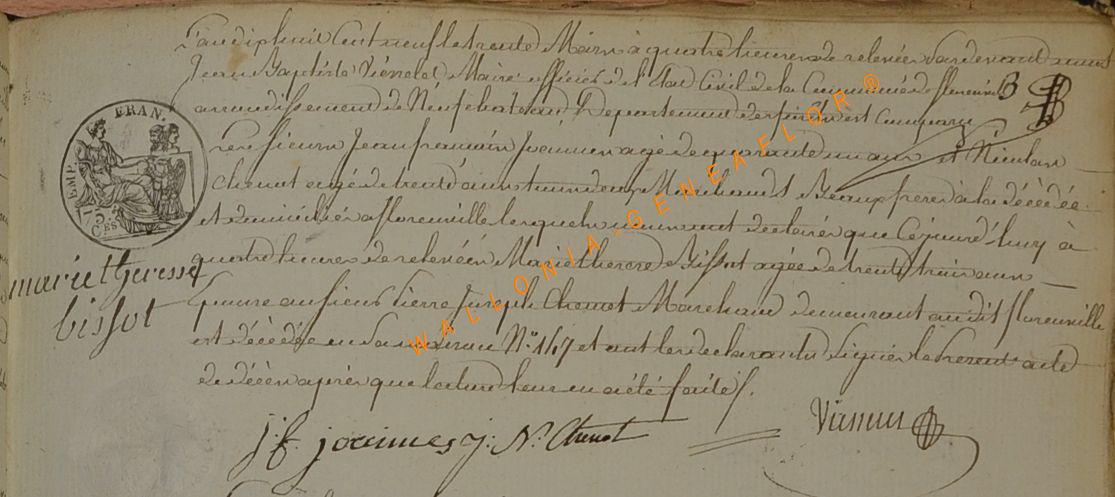 L'an dix huit Cent neuf le trente Mars à quatre heures de relevée Pardevant nous
Jean Baptiste Maire officier de l'Etat Civil de la Commune de florenville
arrondissement de Neufchateau Departement des forêts est Comparu
Les sieurs Jean françois agé de quarante un ans et Nicolas
Chenot agé de trente ans tous deux Marchands Beaufrere à la décédée
et domiciliés a florenville lesquels nous ont declarer que Cejourd'huy à
quatre heures de relevéé Marie therese Bissot agée de trente trois ans
Epouse au sieur Pierre Joseph Chenot Marchand demeurant au dit florenville
est décédée en sa maison N° 147 et ont les declarants Signés le Present acte
de décès après que lecture leur en a été faite
marie theresse
bissot
EMP. FRAN.
75
CES
j. f. N. Chenot
WALLONIA-GENEAFLOR ®